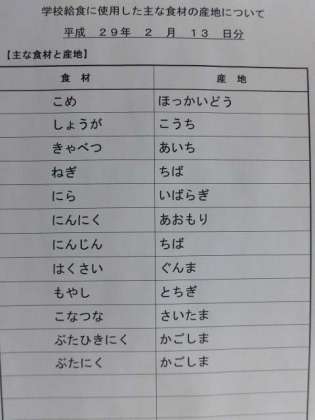 学校給食に使用した主な食材の産地について
平成 29年 2 月 13 日分
【主な食材と産地】
食材 産地
こめ ほっかいどう
しょうが こうち
きゃべつ あいち
ねぎ ちば
にら いばらぎ
にんにく あおもり
にんじん ちば
はくさい ぐんま
もやし とちぎ
こなつな さいたま
ぶたひきにく かごしま
ぶたにく かごしま